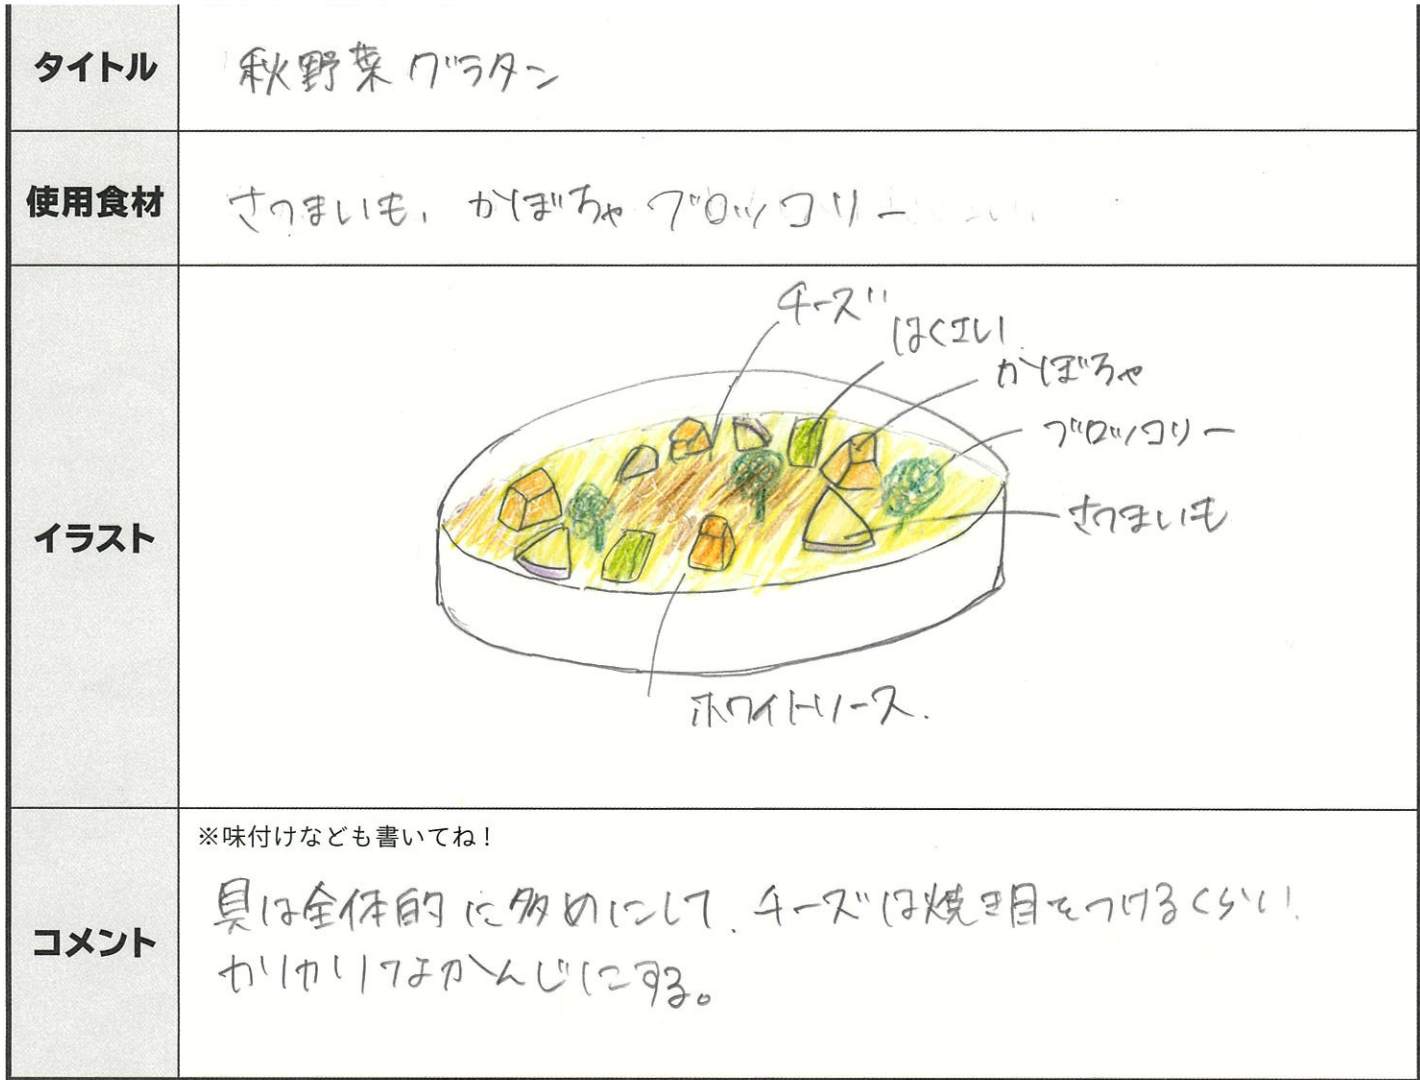 タイトル
秋野菜グラタン
使用食材
さつまいも、かぼちゃ ブロッコリー
イラスト
チーズ
はくさい
かぼちゃ
ブロッコリー
さつまいも
ホワイトソース.
コメント
※味付けなども書いてね!
具は全体的に多めにして、チーズは焼き目をつけるくらい
カリカリなかんじにする。